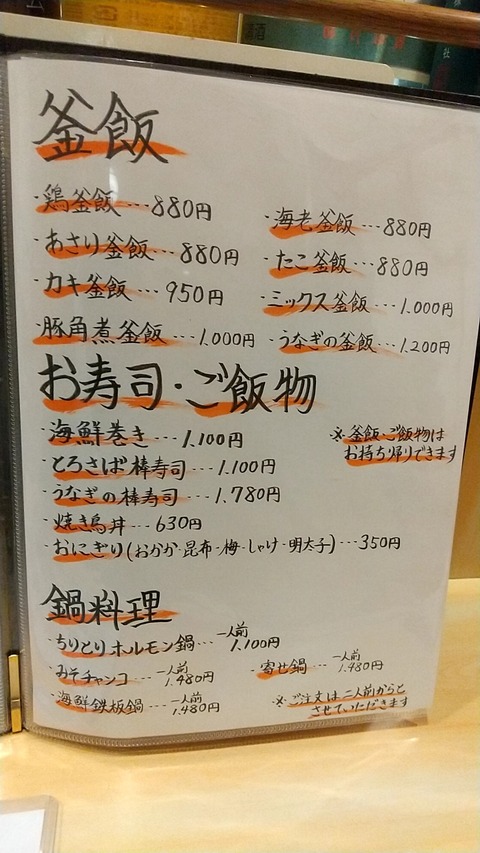 清酒
社
釜飯
・鶏釜飯…880円
・あさり釜飯…880円
・カキ釜飯…950円
・豚角煮釜飯…1.000円
・海老釜飯…880円
・たこ釜飯…880円
・ミックス釜飯…1.000円
・うなぎの釜飯…1.200円
お寿司・ご飯物
・海鮮巻き…1.100円
・とろさば棒寿司…1.100円
・うなぎの棒寿司…1.780円
・焼き鳥丼…630円
・おにぎり(おかか・昆布・梅・しゃけ・明太子)…350円
※釜飯・ご飯物は
お持ち帰りできます
鍋料理
・ちりとりホルモン鍋…一人前1.100円
・みそチャンコ…一人前1.480円
・海鮮鉄板鍋…一人前1.480円
・寄せ鍋…一人前1.480円
※ご注文は二人前からと
させていただきます